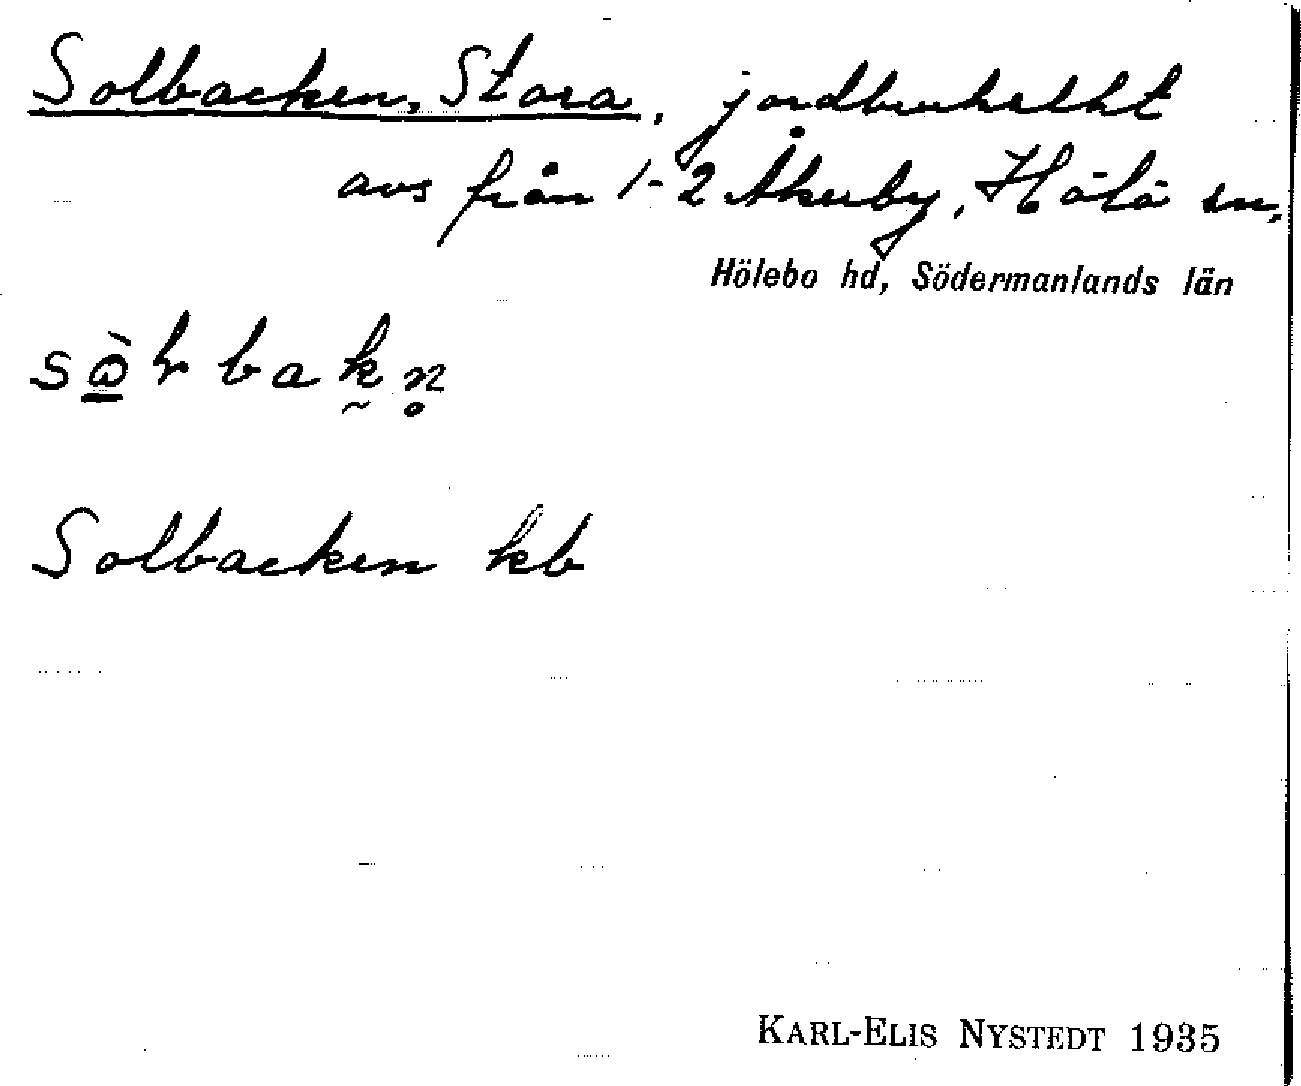 Solbacken, Stora, jordbrukslht
avs från 1-2 Åkerby, Hölö sn,
Hölebo hd, Södermanlands län
Solbacken kb
KARL-ELIS NYSTEDT 1935